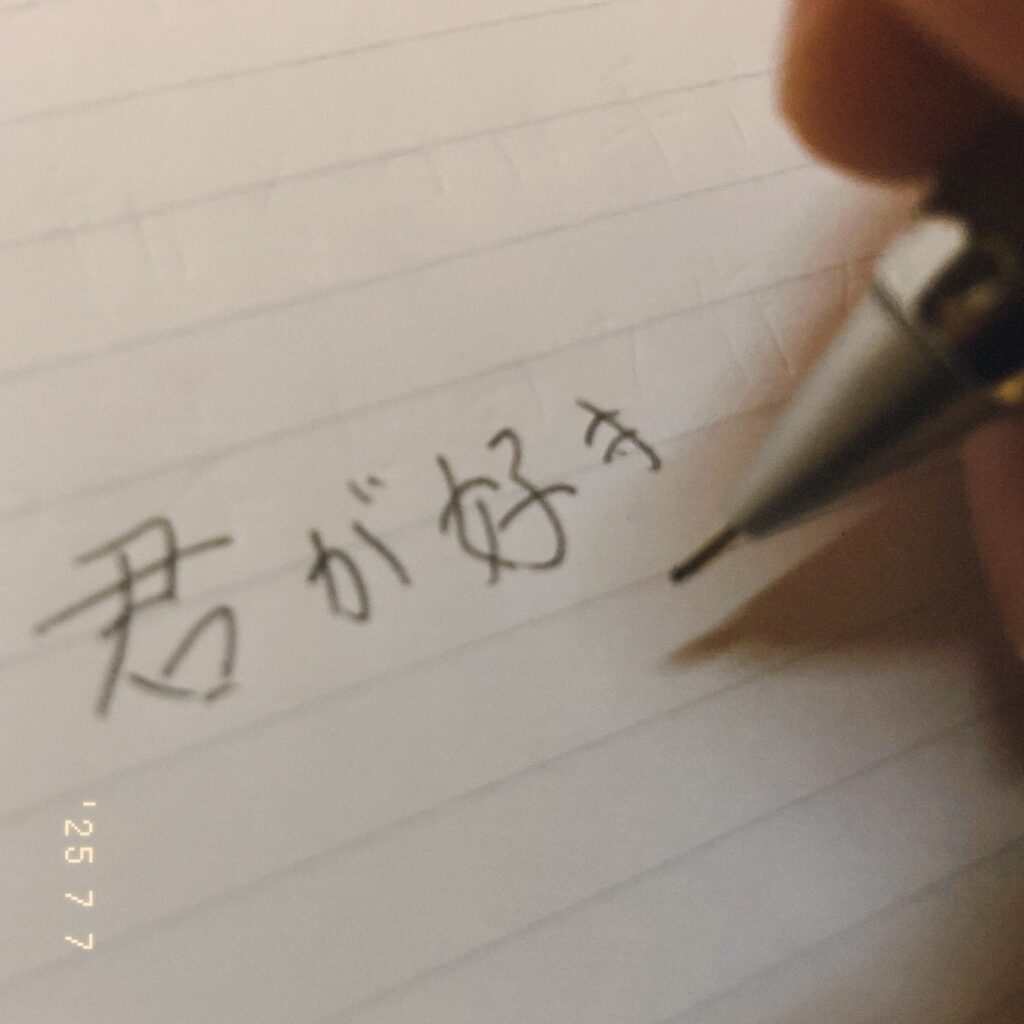 君が好き
'25 7 7